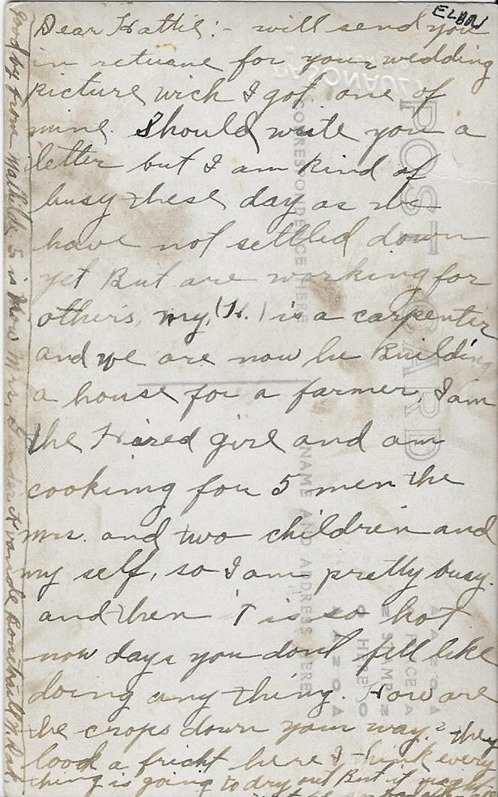 ELBN
Dear Hattie:- will send you
in retuane for your wedding
picture wich I got one of
mine. Should write you a
letter but I am kind of
busy these day as we
have not settled down
yet But are working for
others, my (H.) is a carpenter
and we are now he Building
a house for a farmer, I am
the Hired girl and am
cooking for 5 men the
mrs. and two children and
my self, so I am pretty busy
and then T is so hot
now days you don't fill like
doing any thing. How are
the crops down your way? they
look a fricht here I think every
thing is going to dry out But if
from Mathilda is now Mrs.
POST CARD
CORRESPONDENCE HERE
NAME AND ADDRESS HERE
PLACE
STAMP
HERE